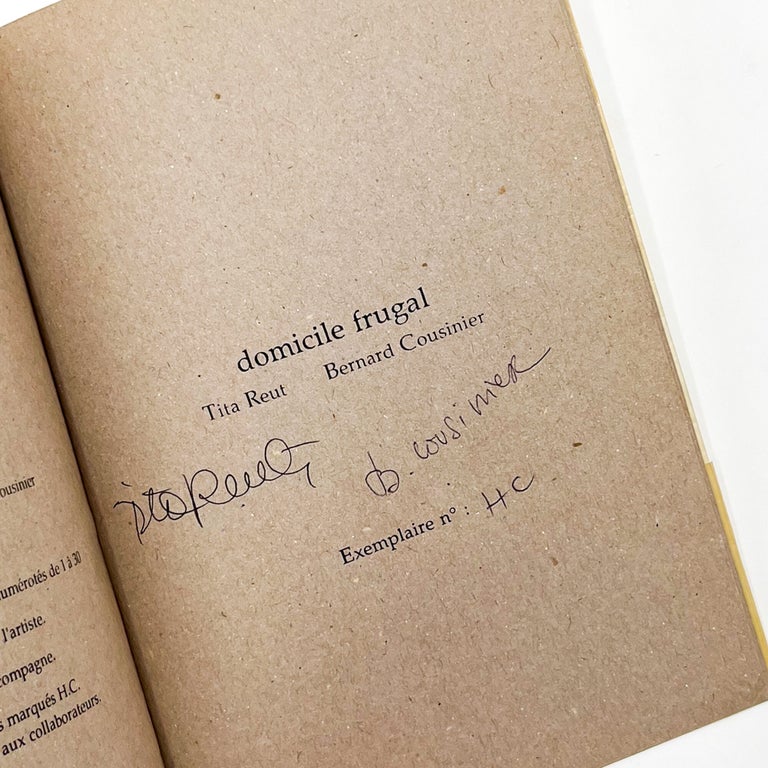 ousinier
umérotés de 1 à 30
l'artiste.
compagne.
s marqués H.C.
aux collaborateurs.
domicile frugal
Tita Reut Bernard Cousinier
Tita Reut
B. Cousinier
Exemplaire n° : HC